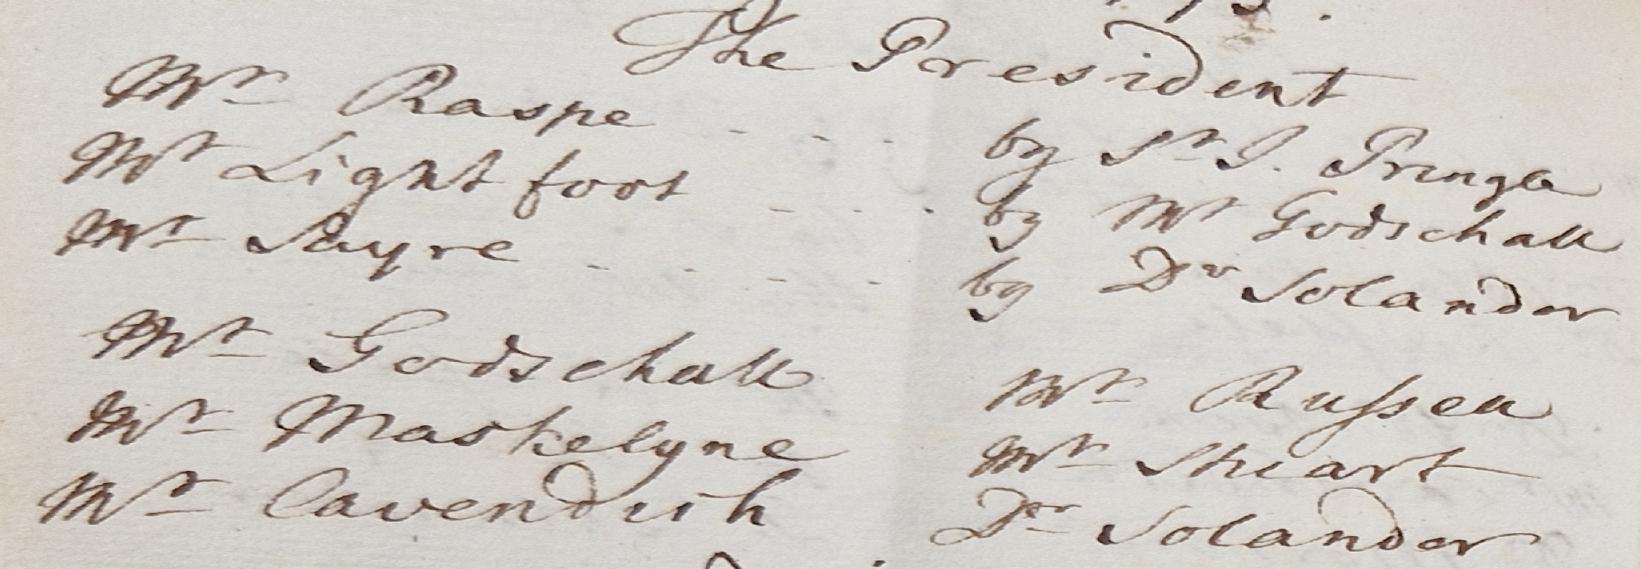 The President
Mr Raspe - - - - by Sr J. Pringle
Mr Lightfoot - - - by Mr Godschall
Mr Sayre - - - - by Dr Solander
Mr Godschall Mr Russell
Mr Maskelyne Mr Stuart
Mr Cavendish Dr Solander